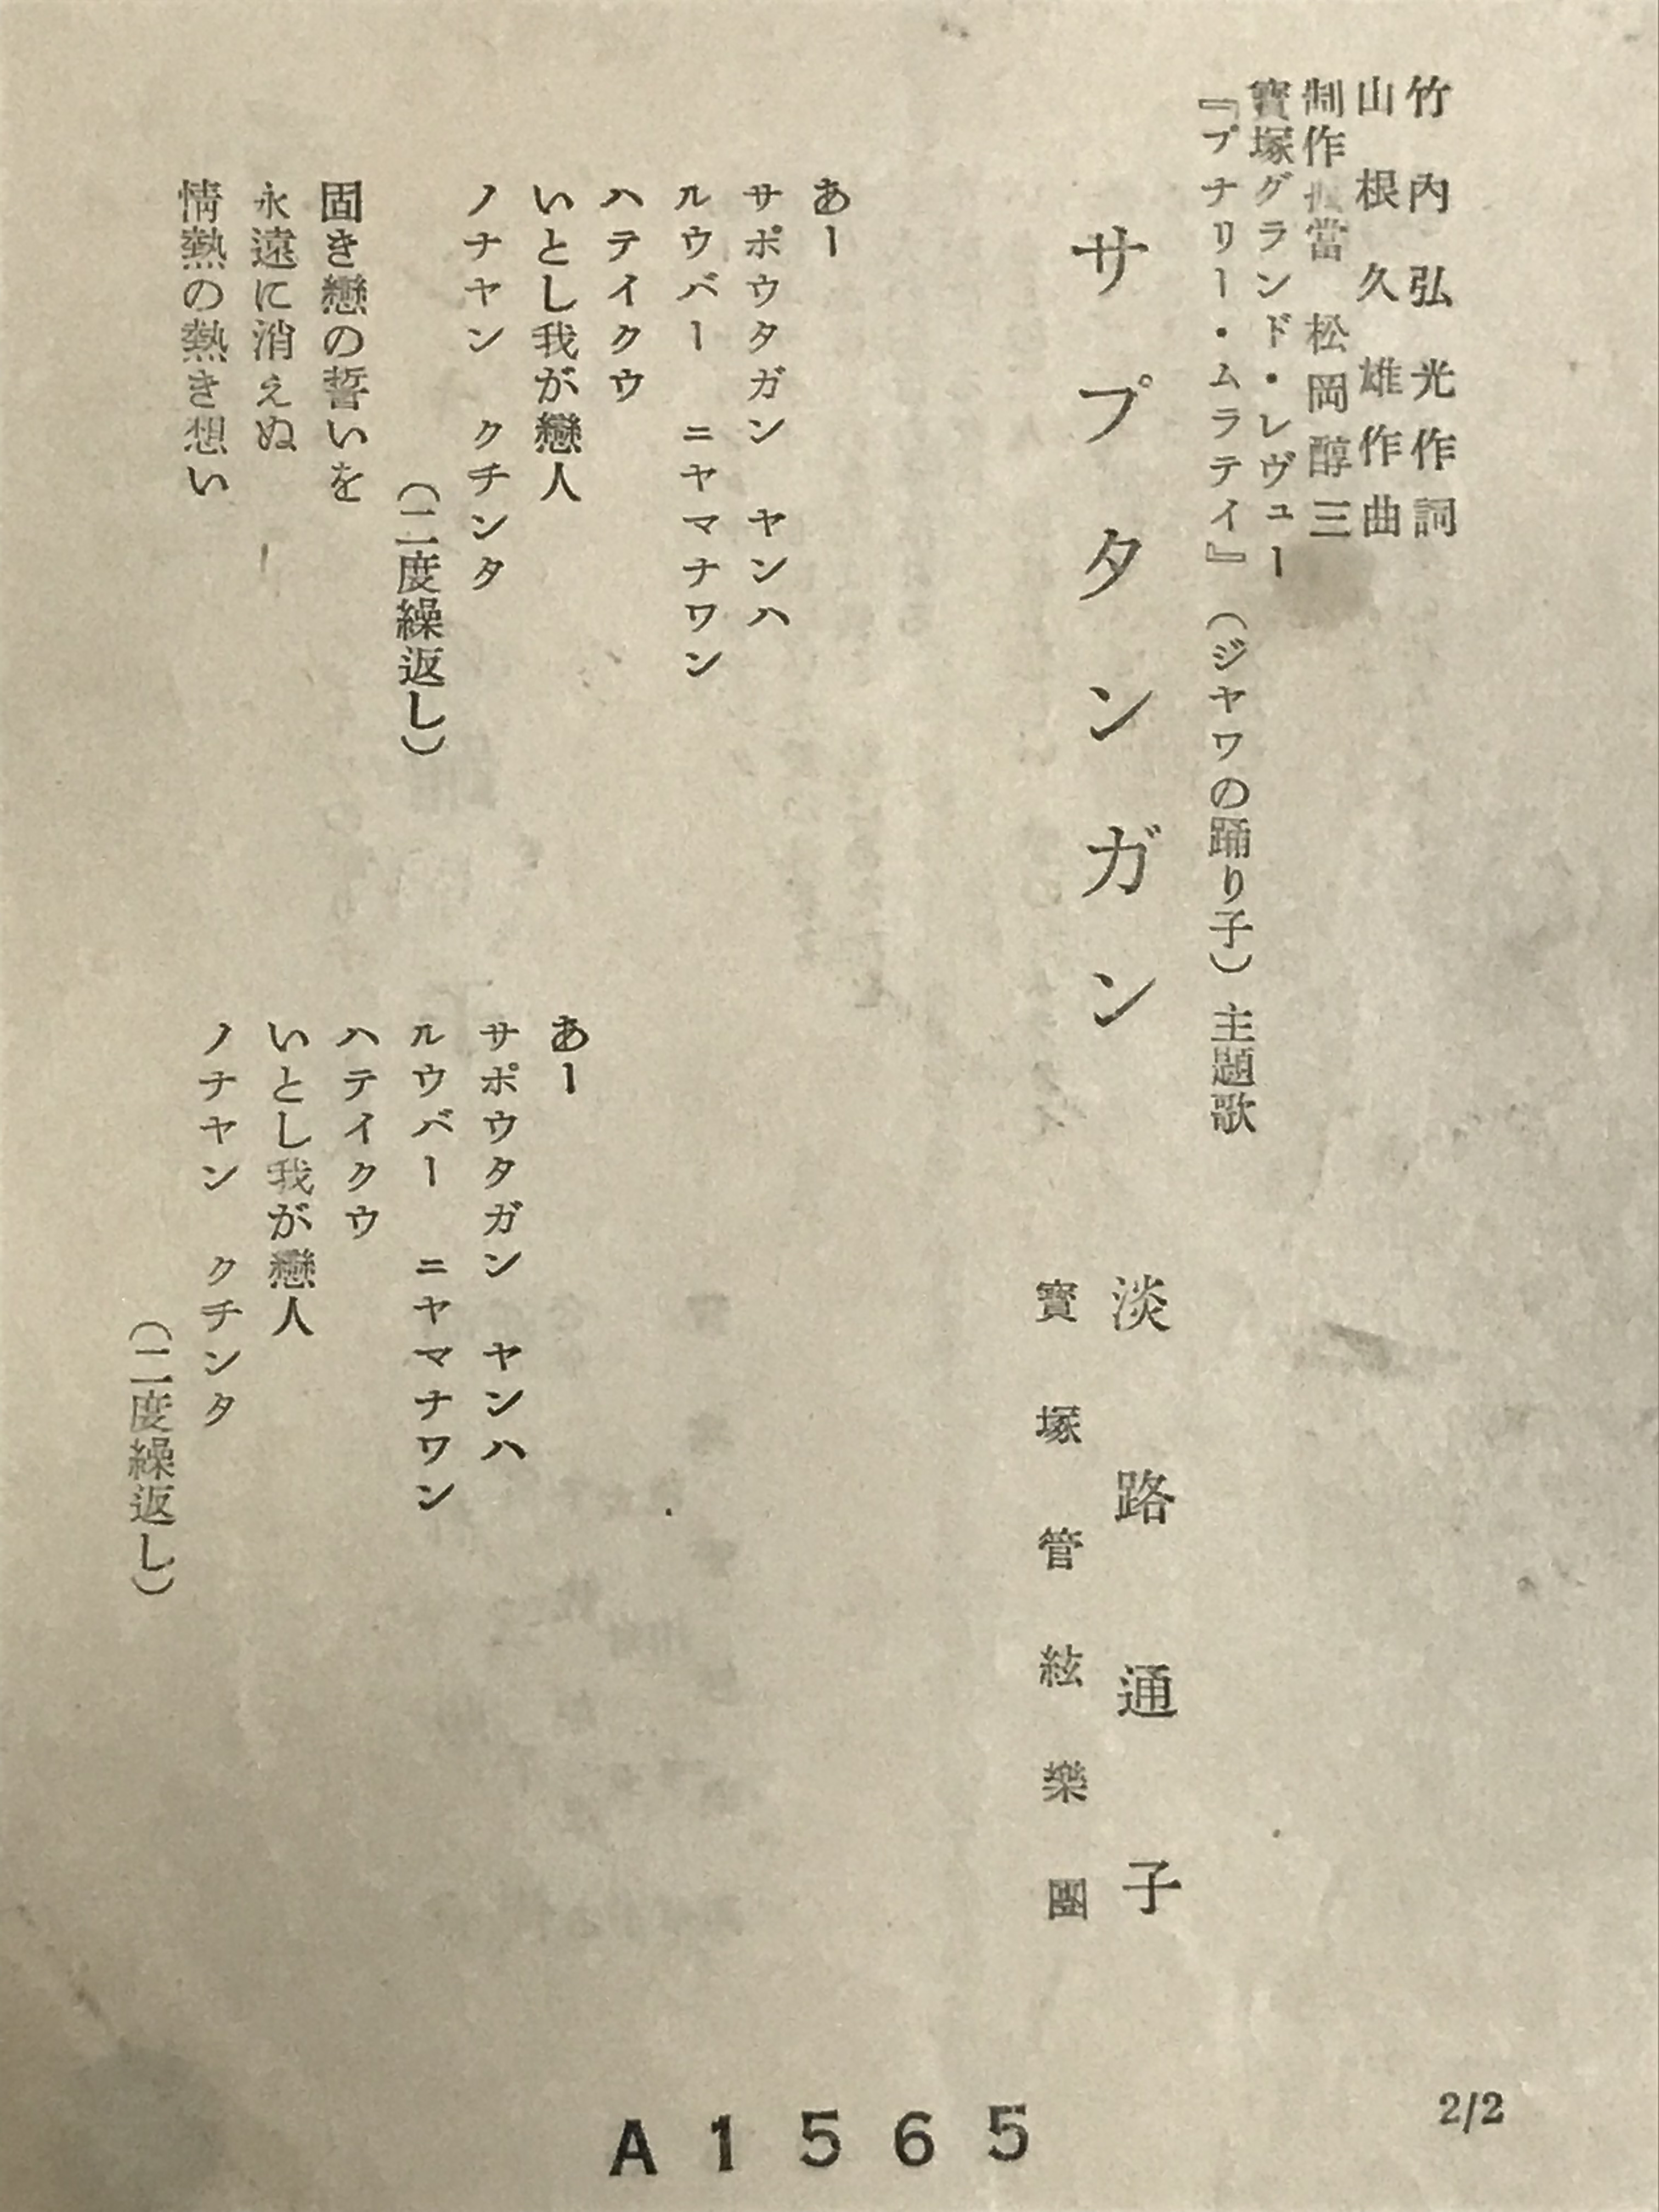 竹内弘光作詞
山根久雄作曲
制作擔當 松岡醇三
寶塚グランド・レヴュー
『プナリー・ムラテイ』(ジヤワの踊り子)主題歌
サプタンガン
淡路通子
寶塚管絃樂團
あー
サポウタガン ヤンハ
ルウバー ニヤマナワン
ハテイクウ
いとし我が戀人
ノナヤン クチンタ
(二度繰返し)
固き戀の誓いを
永遠に消えぬ
情熱の熱き想い
あー
サポウタガン ヤンハ
ルウバー ニヤマナワン
ハテイクウ
いとし我が戀人
ノナヤン クチンタ
(二度繰返し)
2/2
A1565